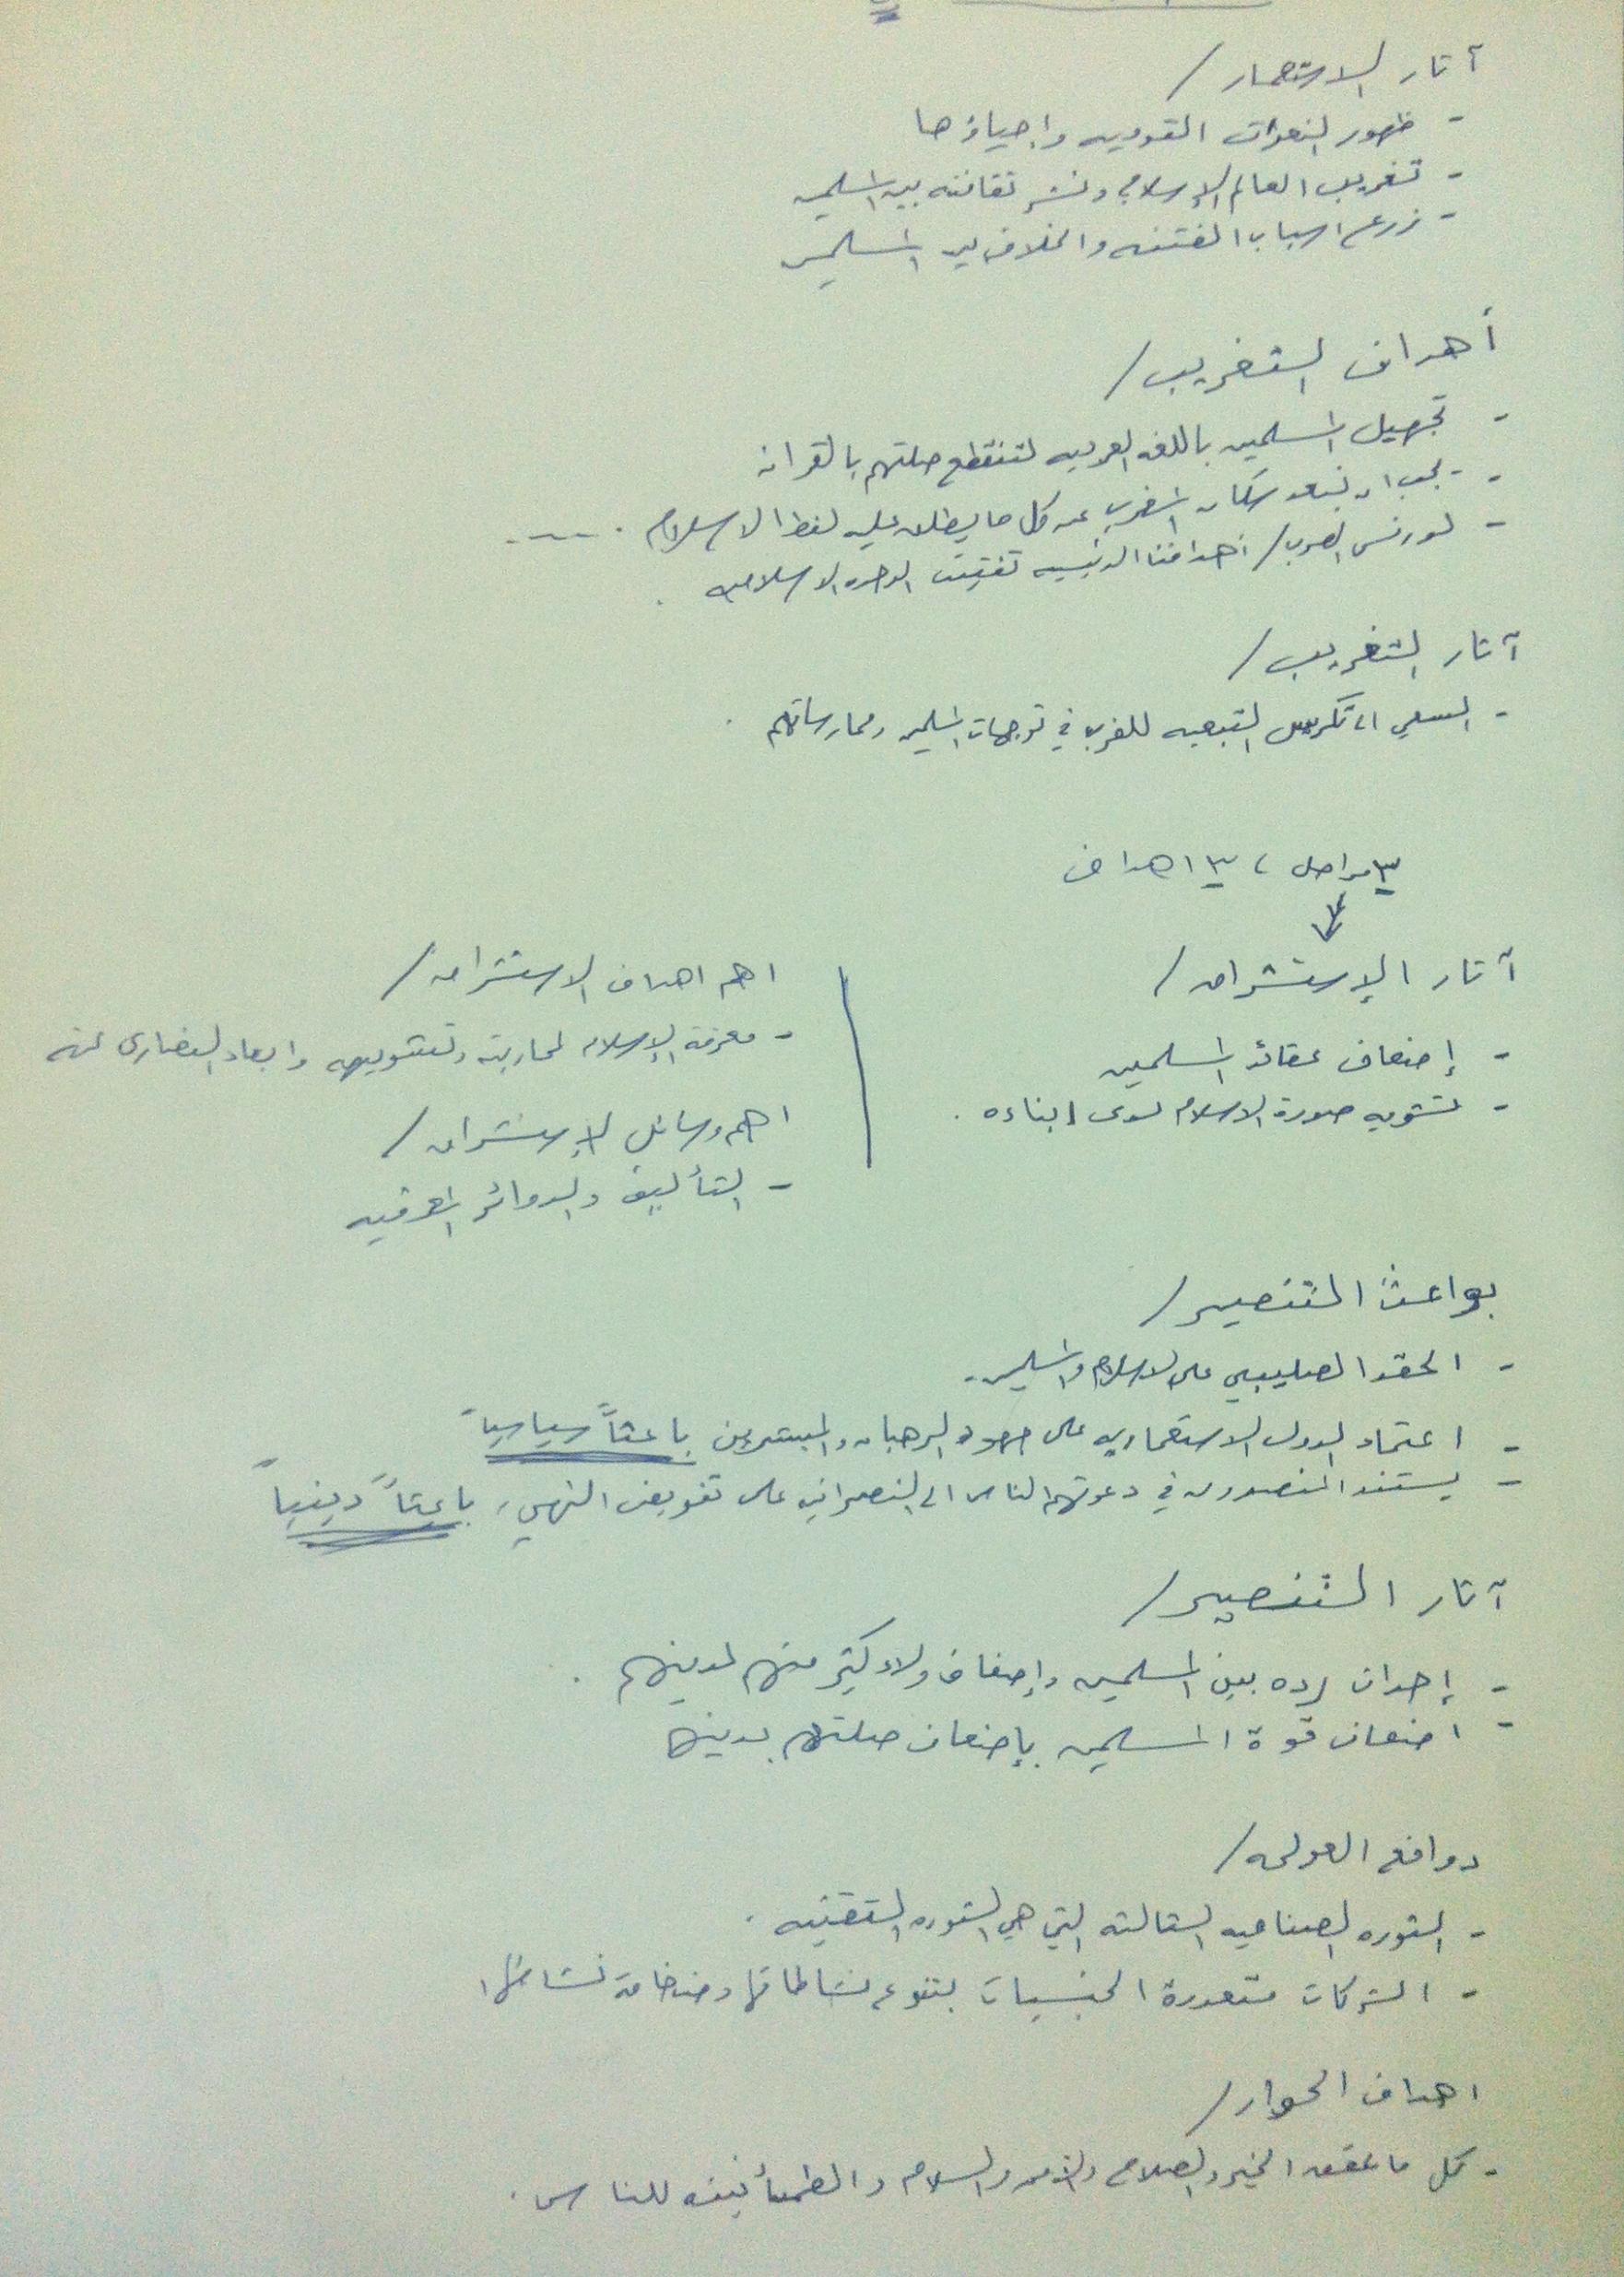 آثار الاستعمار /
- ظهور النعرات القوميه وإحياؤها
- تغريب العالم الإسلامي ونشر ثقافته بين المسلمين
- زرع اسباب الفتنه والخلاف بين المسلمين
أهداف التغريب /
- تجهيل المسلمين باللغه العربيه لتنقطع صلتهم بالقران
- - يجب ان نبعد سكان المغرب عن كل ما يطلق عليه لفظ الاسلام .
- لورنس العرب / أهدافنا الرئيسيه تفتيت الوحده الاسلاميه .
آثار التغريب /
- السعي الى تكريس التبعيه للغرب في توجهات المسلمين وممارساتهم .
٣ مراحل ، ٣ اهداف
آثار الإستشراق /
- إضعاف عقائد المسلمين
- تشويه صورة الاسلام لدى ابناءه .
اهم اهداف الاستشراق /
- معرفة الإسلام لمحاربته وتشويهه وابعاد النصارى عنه
اهم وسائل الإستشراق /
- التأليف والدوائر المعرفيه
بواعث التنصير /
- الحقد الصليبي على الاسلام والمسلمين .
- اعتماد الدول الاستعماريه على جهود الرهبان والمبشرين باعثاً سياسياً
- يستند المنصرون في دعوتهم الناس الى النصرانيه على تفويض الهي ، باعثاً دينياً
آثار التنصير /
- إحداث رده بين المسلمين وإضعاف ولاء كثير منهم لدينهم .
- اضعاف قوة المسلمين بإضعاف صلتهم بدينهم
دوافع العولمه /
- الثوره الصناعيه الثالثه التي هي الثوره التقنيه .
- الشركات متعددة الجنسيات بتنوع نشاطاتها وضخامة نشاطها
اهداف الحوار /
- كل ما يحقق الخير والصلاح والأمن والسلام والطمأنينه للناس .